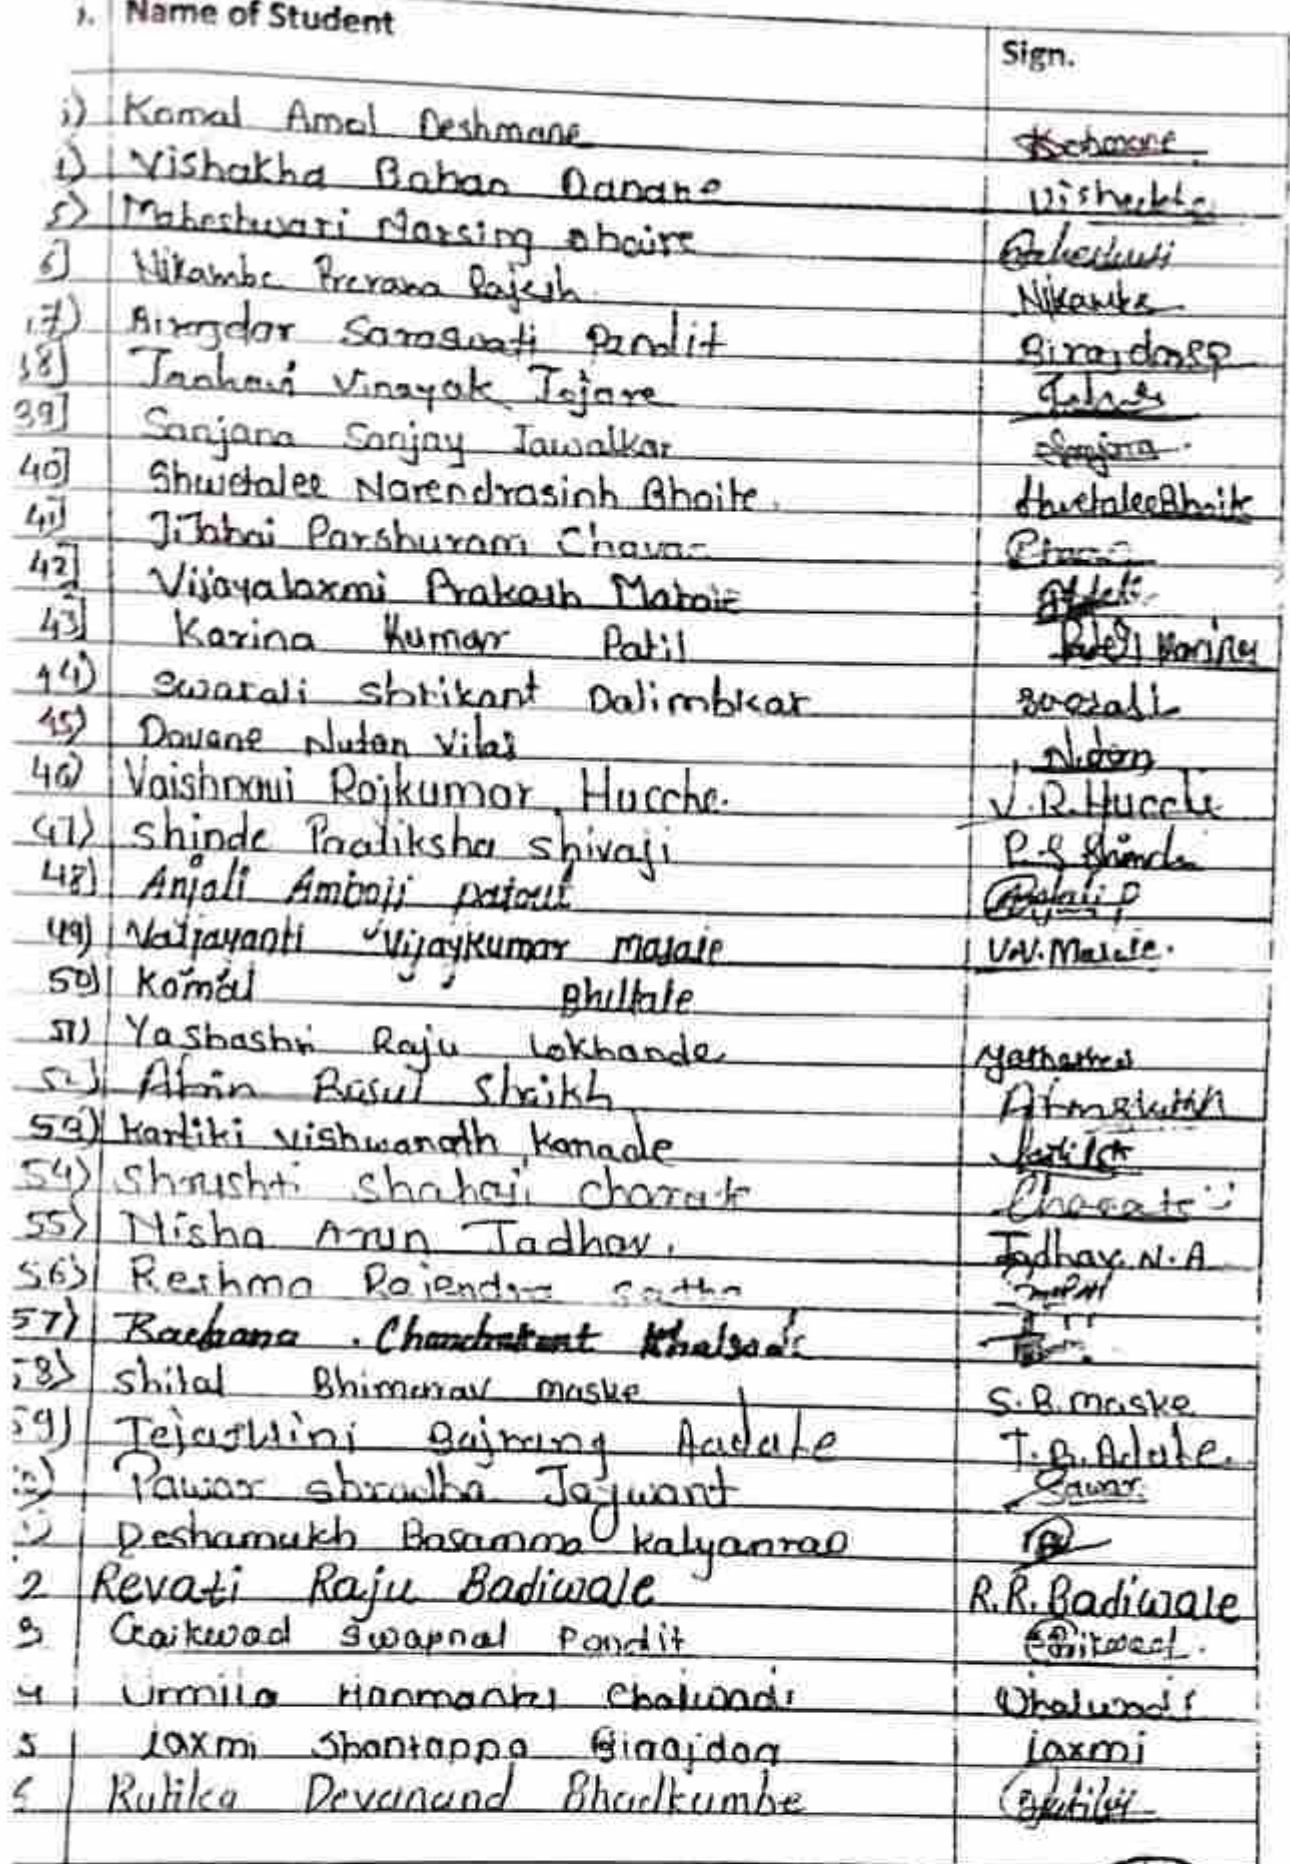 ). Name of Student Sign.
i) Komal Amol Deshmane
i) Vishakha Baban Danane Vishakha
5) Maheshwari Narsing Bhaire Maheshwari
6] Nikambe Prerana Rajesh. Nikambe
17) Birajdar Saraswati Pandit Birajdar SP
38] Janhavi Vinayak Jojare
39] Sanjana Sanjay Jawalkar Sanjana
40] Shwetalee Narendrasinh Bhaite. Shwetalee Bhaite
41] Jijabai Parshuram Chavan
42] Vijayalaxmi Prakash
43] Karina Kumar Patil Patil Karina
44) Swarali Shrikant Dalimbkar Swarali
45) Davane Nutan Vilas Nutan
46) Vaishnavi Rajkumar Hucche. V.R.Hucche
47) Shinde Pratiksha Shivaji P.S Shinde
48) Anjali Amboji Anjali P
49) Vaijayanti Vijaykumar Masale V.V.Masale.
50) Komal
51) Yashashri Raju Lokhande Yashashri
52) Afrin Rasul Shaikh
53) Kartiki Vishwanath Kanade Kartiki
54) Shrushti Shahaji Charate Charate
55) Nisha Arun Jadhav. Jadhav. N. A
56) Reshma Rajendra
57) Rachana . Chandrakant
58) Shital Bhimarav maske S.B.maske
59) Tejaswini Bajrang Aadate T.B.Adate.
Pawar Shradha Jaywant Pawar
Deshamukh Basamma Kalyanrao
2 Revati Raju Badiwale R.R.Badiwale
3 Gaikwad Swapnal Pandit Gaikwad.
4 Urmila Hanmantu Chalwadi Uhalwadi
5 Laxmi Shantappa Birajdar Laxmi
6 Rutika Devanand Bhadkumbe Rutika